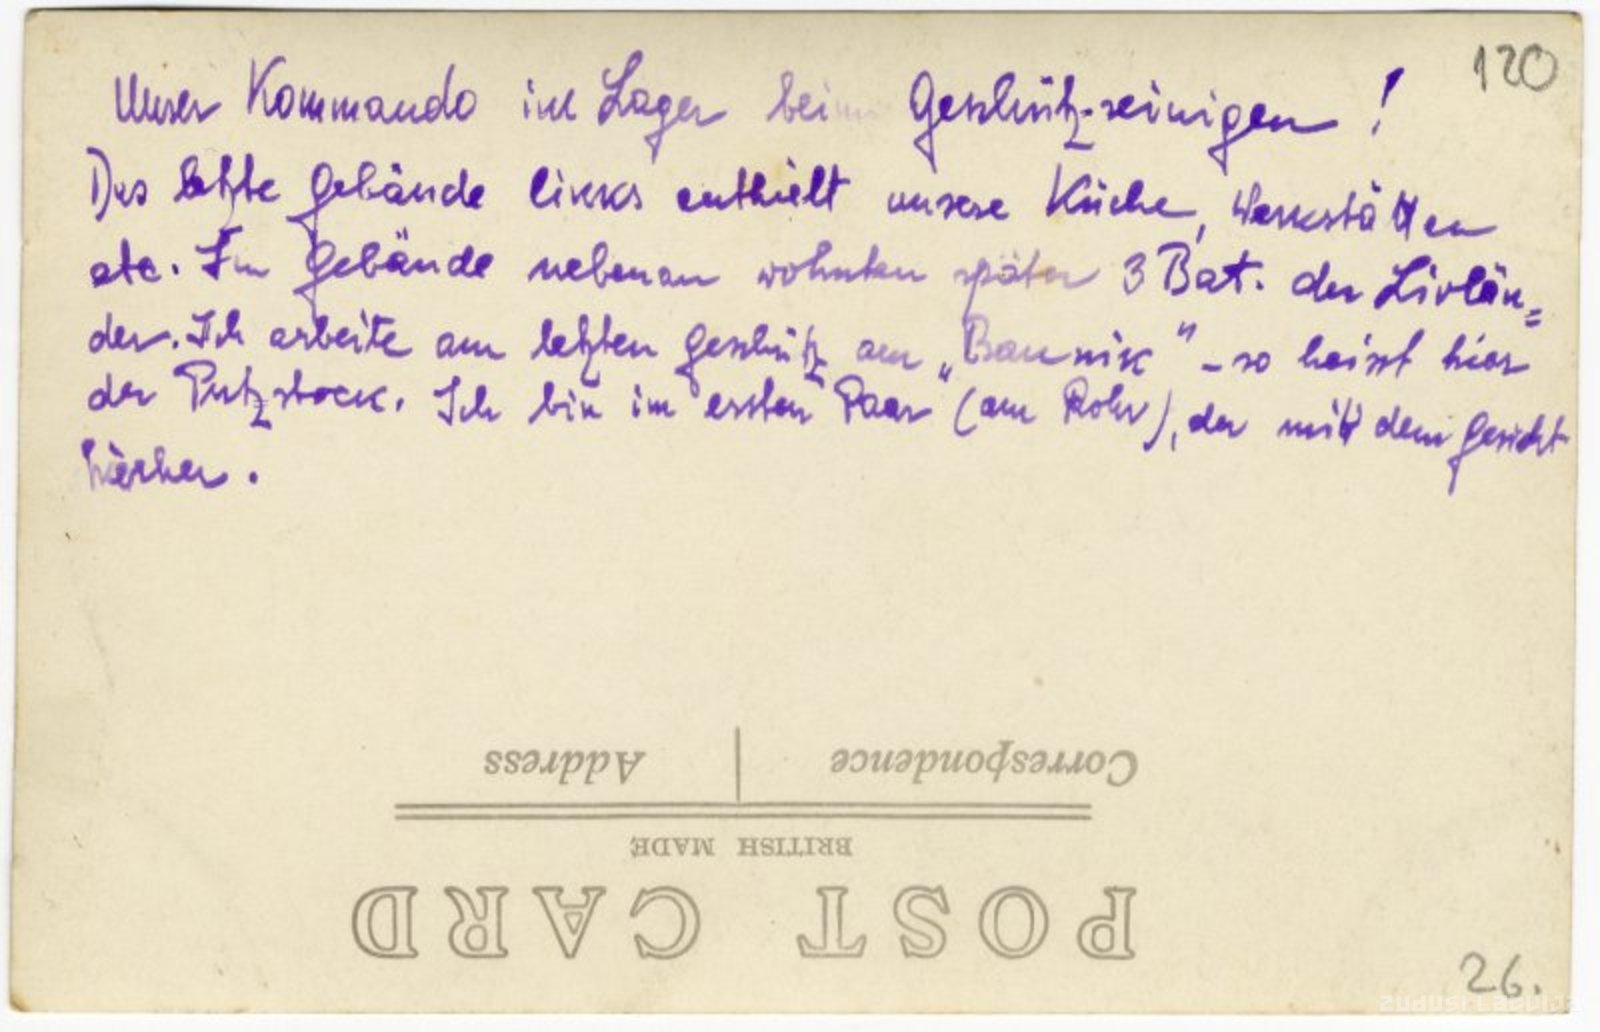 120
Unser Kommando im Lager beim Geschütz-reinigen!
Das letzte Gebäude links enthielt unsere Küche, Werkstätten
etc. Im Gebäude nebenan wohnten später 3 Bat. der Livlän=
der. Ich arbeite am letzten Geschütz am „Bannik" – so heisst hier
der Putzstock. Ich bin im ersten Paar (am Rohr), der mit dem Gesicht
hierher.
Correspondence
Address
BRITISH MADE
POST CARD
26.